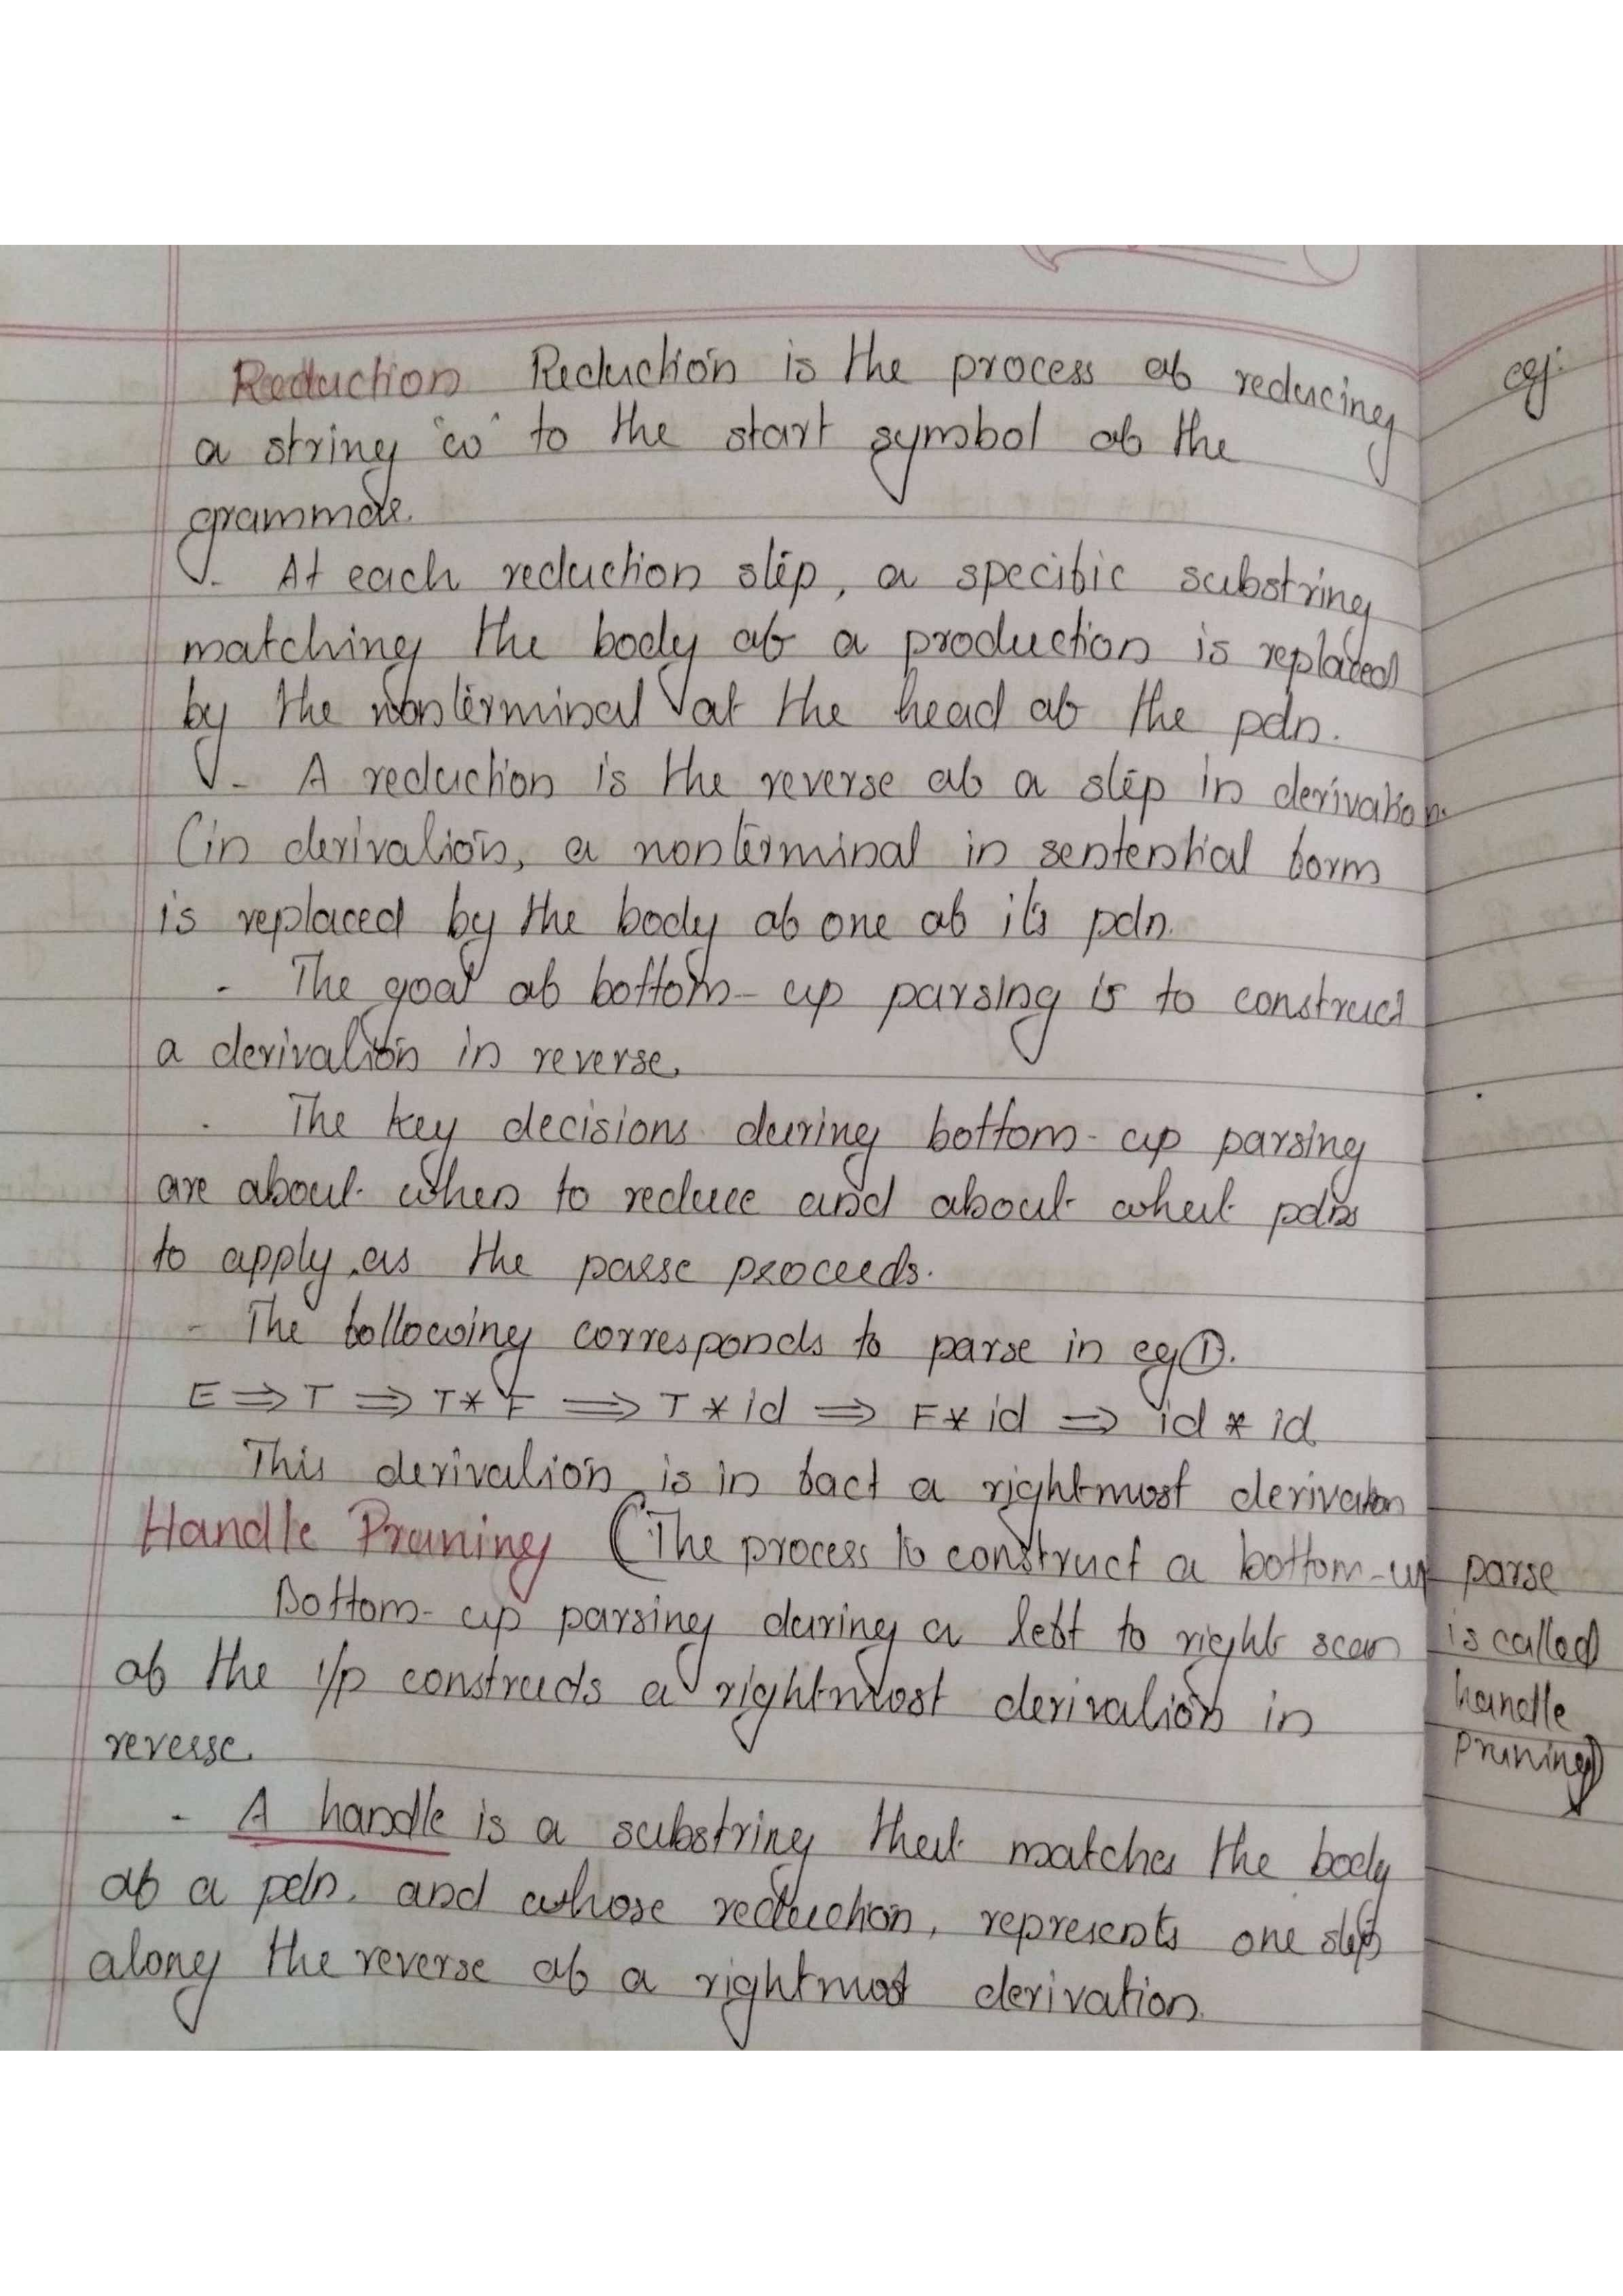 Reduction Reduction is the process of reducing
a string "w" to the start symbol of the
grammar.
- At each reduction step, a specific substring
matching the body of a production is replaced
by the nonterminal at the head of the pdn.
- A reduction is the reverse of a step in derivation.
(in derivation, a nonterminal in sentential form
is replaced by the body of one of its pdn.
- The goal of bottom-up parsing is to construct
a derivation in reverse.
- The key decisions during bottom-up parsing
are about when to reduce and about what pdns
to apply, as the parse proceeds.
- The following corresponds to parse in eg ①.
E ⇒ T ⇒ T * F ⇒ T * id ⇒ F * id ⇒ id * id
This derivation is in fact a rightmost derivation
Handle Pruning (The process to construct a bottom-up parse
is called
handle
pruning)
Bottom-up parsing during a left to right scan
of the i/p constructs a rightmost derivation in
reverse.
- A handle is a substring that matches the body
of a pdn. and whose reduction, represents one step
along the reverse of a rightmost derivation.
eg: